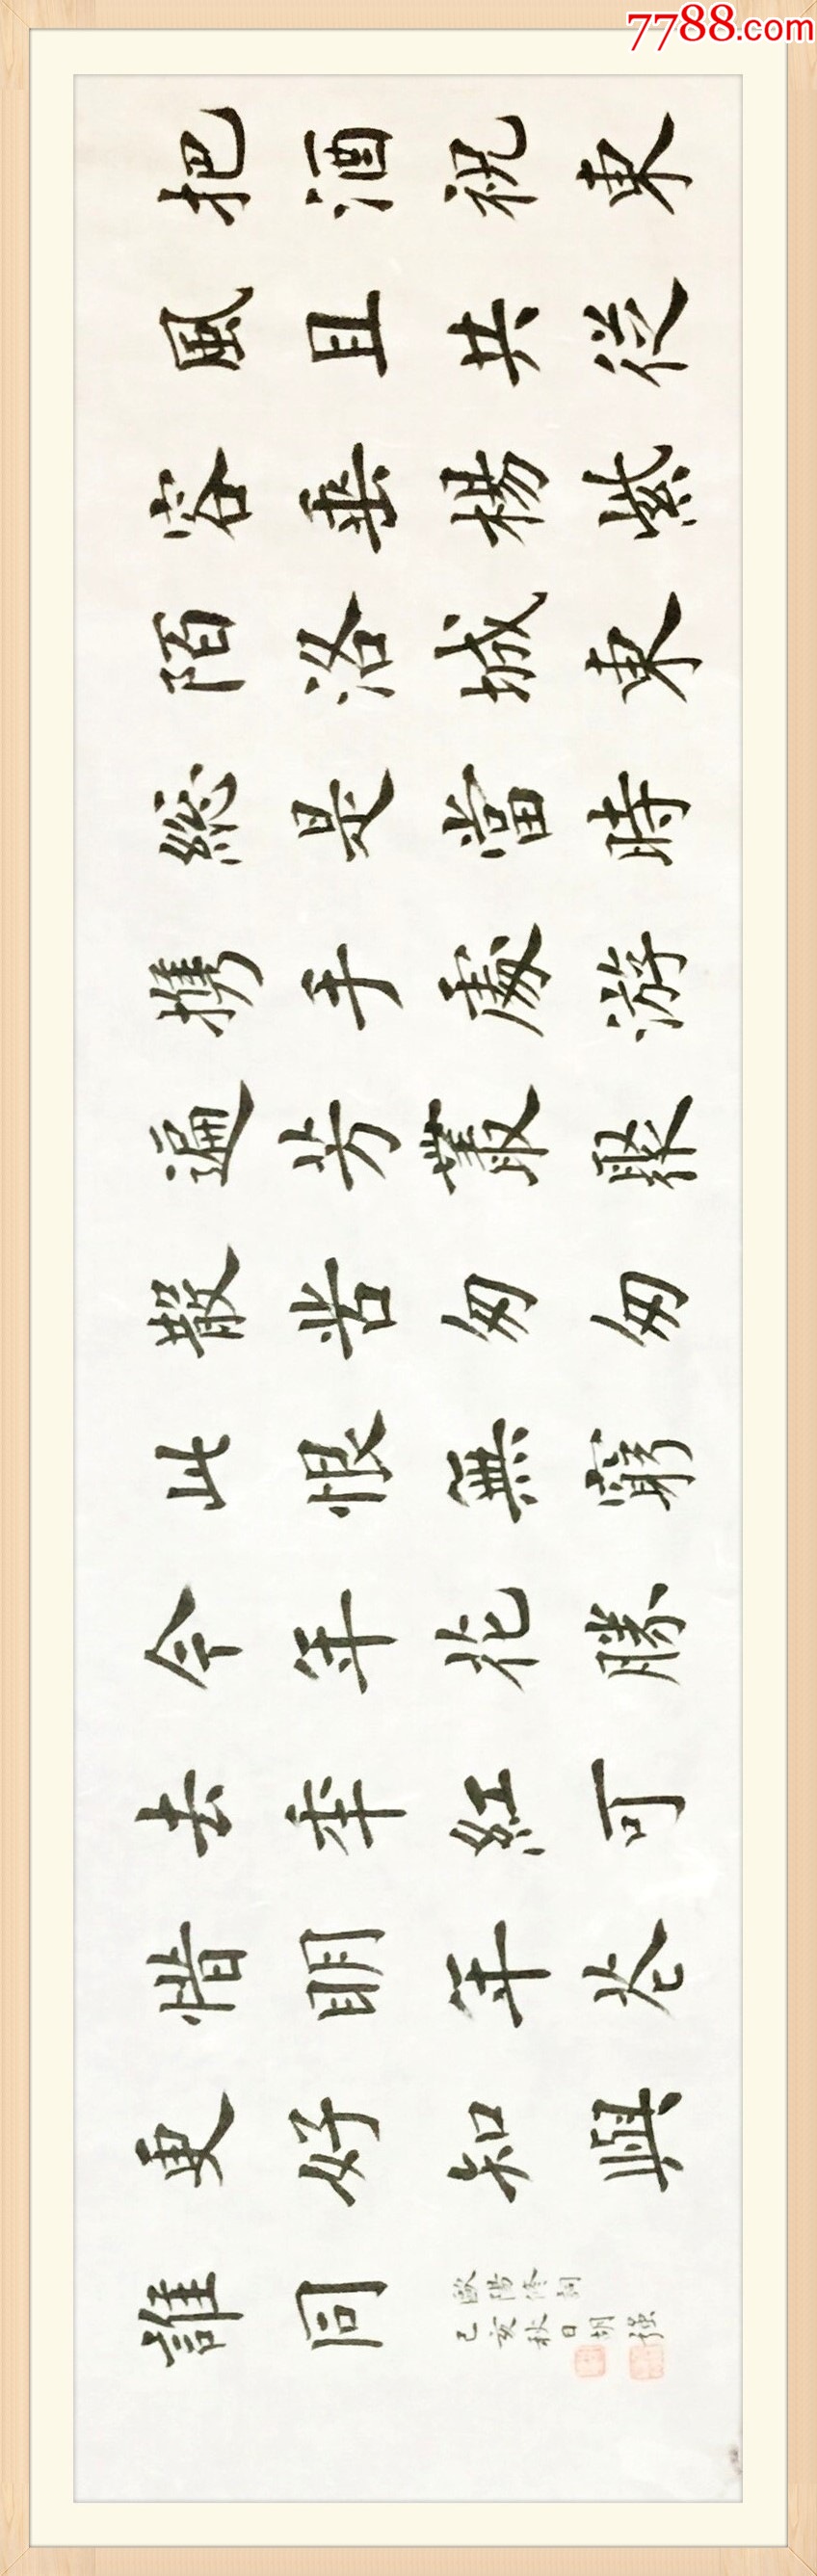 7788.com
把酒祝東
風且共從
容垂楊紫
陌洛城東
総是當時
携手處游
遍芳叢聚
散苦匆匆
此恨無窮
今年花勝
去年紅可
惜明年花
更好知與
誰同
歐陽修詞
己亥秋日胡强